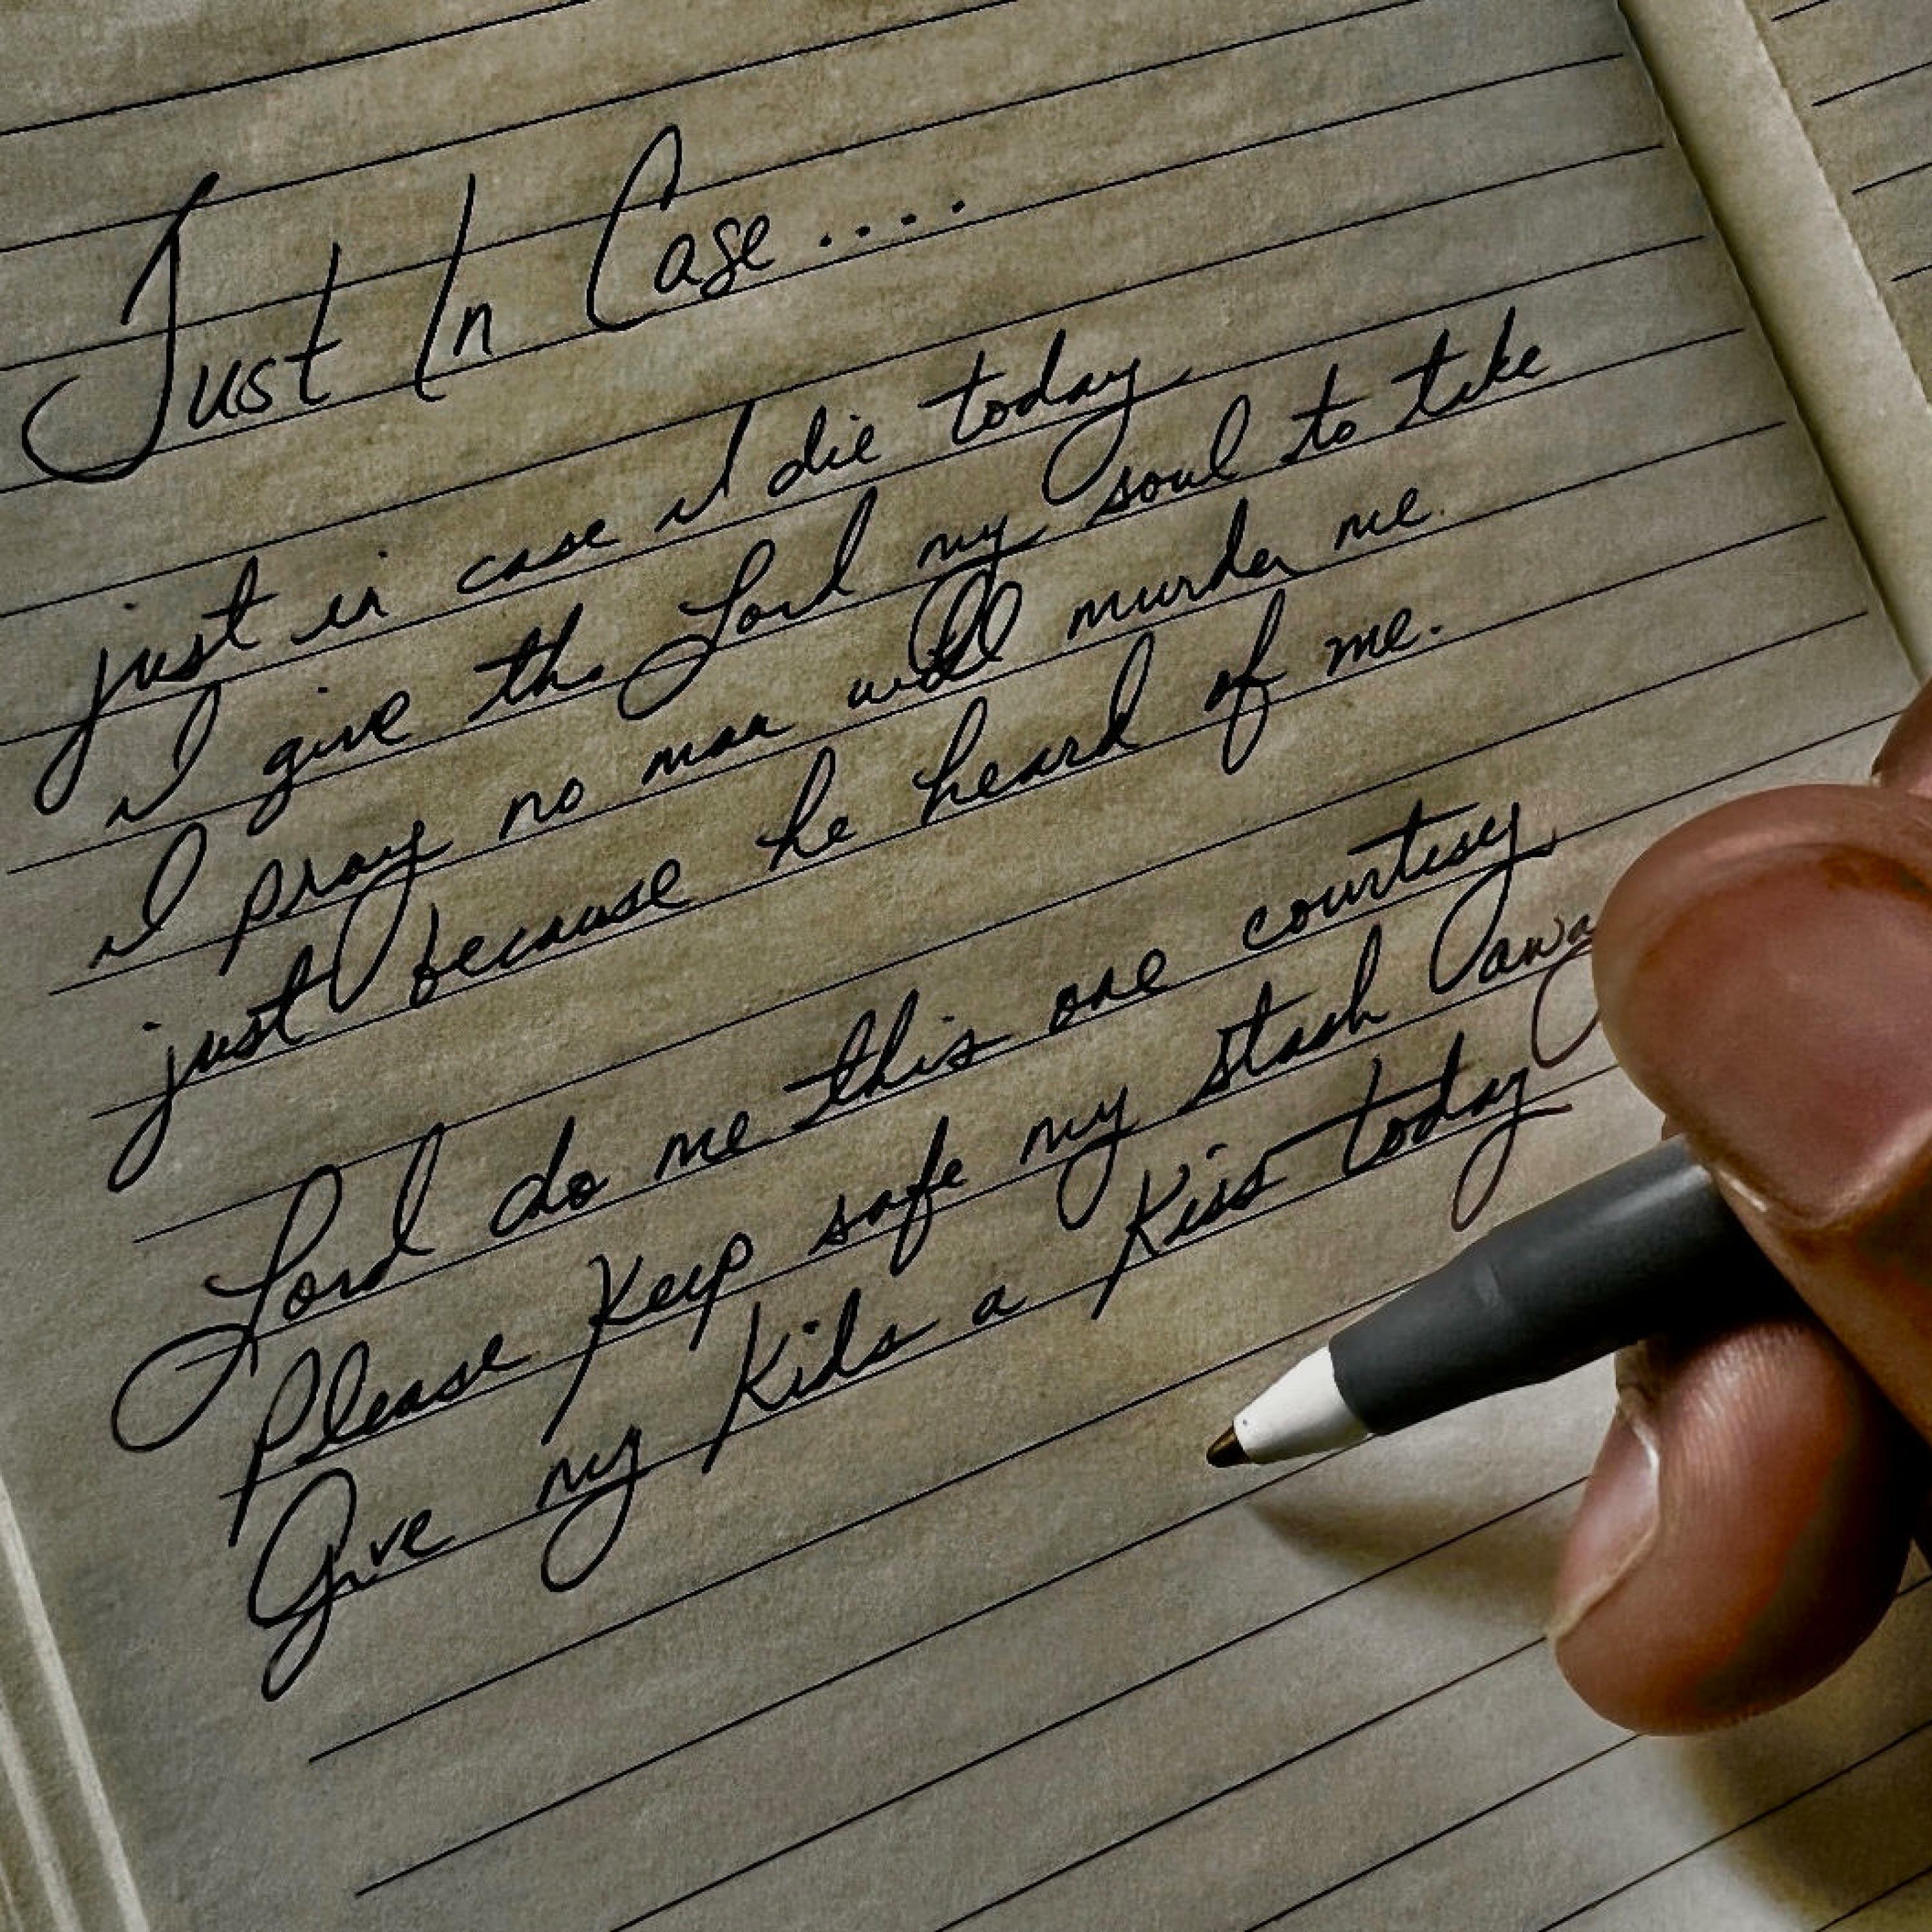 Just In Case....
just in case I die today
I give the Lord my soul to take
I pray no man will murder me.
just because he heard of me.
Lord do me this one courtesy
Please Keep safe my stash away
Give my Kids a Kiss today